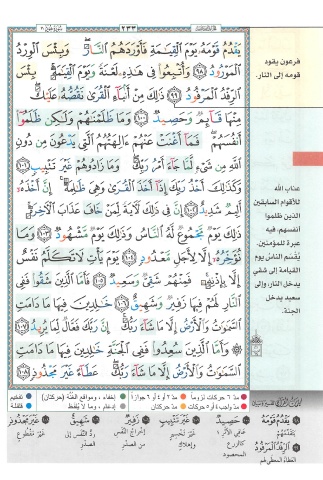 ٢٣٣
يَقْدُمُ قَوْمَهُۥ يَوْمَ ٱلْقِيَـٰمَةِ فَأَوْرَدَهُمُ ٱلنَّارَ ۖ وَبِئْسَ ٱلْوِرْدُ
ٱلْمَوْرُودُ ٩٨ وَأُتْبِعُوا۟ فِى هَـٰذِهِۦ لَعْنَةً وَيَوْمَ ٱلْقِيَـٰمَةِ ۚ بِئْسَ
ٱلرِّفْدُ ٱلْمَرْفُودُ ٩٩ ذَٰلِكَ مِنْ أَنۢبَآءِ ٱلْقُرَىٰ نَقُصُّهُۥ عَلَيْكَ ۖ
مِنْهَا قَآئِمٌ وَحَصِيدٌ ١٠٠ وَمَا ظَلَمْنَـٰهُمْ وَلَـٰكِن ظَلَمُوٓا۟
أَنفُسَهُمْ ۖ فَمَآ أَغْنَتْ عَنْهُمْ ءَالِهَتُهُمُ ٱلَّتِى يَدْعُونَ مِن دُونِ
ٱللَّهِ مِن شَىْءٍ لَّمَّا جَآءَ أَمْرُ رَبِّكَ ۖ وَمَا زَادُوهُمْ غَيْرَ تَتْبِيبٍ ١٠١
وَكَذَٰلِكَ أَخْذُ رَبِّكَ إِذَآ أَخَذَ ٱلْقُرَىٰ وَهِىَ ظَـٰلِمَةٌ ۚ إِنَّ أَخْذَهُۥٓ
أَلِيمٌ شَدِيدٌ ١٠٢ إِنَّ فِى ذَٰلِكَ لَـَٔايَةً لِّمَنْ خَافَ عَذَابَ ٱلْـَٔاخِرَةِ ۚ
ذَٰلِكَ يَوْمٌ مَّجْمُوعٌ لَّهُ ٱلنَّاسُ وَذَٰلِكَ يَوْمٌ مَّشْهُودٌ ١٠٣ وَمَا
نُؤَخِّرُهُۥٓ إِلَّا لِأَجَلٍ مَّعْدُودٍ ١٠٤ يَوْمَ يَأْتِ لَا تَكَلَّمُ نَفْسٌ
إِلَّا بِإِذْنِهِۦ ۚ فَمِنْهُمْ شَقِىٌّ وَسَعِيدٌ ١٠٥ فَأَمَّا ٱلَّذِينَ شَقُوا۟ فَفِى
ٱلنَّارِ لَهُمْ فِيهَا زَفِيرٌ وَشَهِيقٌ ١٠٦ خَـٰلِدِينَ فِيهَا مَا دَامَتِ
ٱلسَّمَـٰوَٰتُ وَٱلْأَرْضُ إِلَّا مَا شَآءَ رَبُّكَ ۚ إِنَّ رَبَّكَ فَعَّالٌ لِّمَا يُرِيدُ ١٠٧
وَأَمَّا ٱلَّذِينَ سُعِدُوا۟ فَفِى ٱلْجَنَّةِ خَـٰلِدِينَ فِيهَا مَا دَامَتِ
ٱلسَّمَـٰوَٰتُ وَٱلْأَرْضُ إِلَّا مَا شَآءَ رَبُّكَ ۖ عَطَآءً غَيْرَ مَجْذُوذٍ ١٠٨
فرعون يقود
قومه إلى النار.
عذاب الله
للأقوام السابقين
الذين ظلموا
أنفسهم، فيه
عبرة للمؤمنين.
يُقْسَم الناس يوم
القيامة إلى شقي
يدخل النار، وإلى
سعيد يدخل
الجنة.
مدّ ٦ حركات لزوماً
مدّ ٢ أو ٤ أو ٦ جوازاً
إخفاء، ومواقع الغُنَّة (حركتان)
تفخيم
مدّ واجب ٤ أو ٥ حركات
مدّ حركتان
إدغام، وما لا يُلفَظ
قلقلة
يَقْدُمُ قَوْمَهُ
يتقدَّمُهم
الرِّفْدُ المَرْفُودُ
العَطاءُ المُعطى لهم
حَصِيدٌ
عافي الأثر
كالزرع
المحصود
غَيْرَ تَتْبِيبٍ
غيرَ تخسيرٍ
وإهلاكٍ
زَفِيرٌ
إخراجُ النَّفَس
من الصَّدرِ
شَهِيقٌ
ردُّ النَّفَسِ إلى
الصَّدرِ
غَيْرَ مَجْذُوذٍ
غيرَ مقطوعٍ